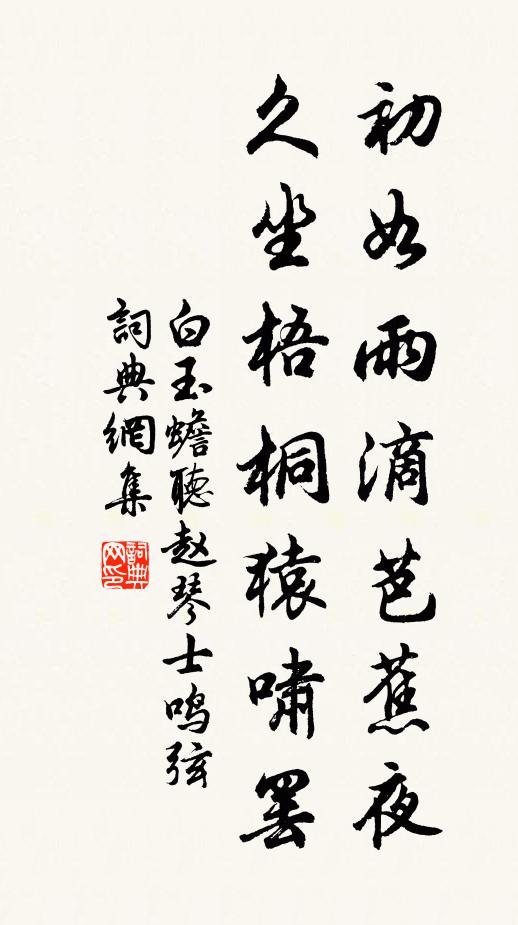 初如雨滴芭蕉夜
久坐梧桐猿啸罢
白玉蟾聽赵琴士鸣弦
詞典網集
詞典网印